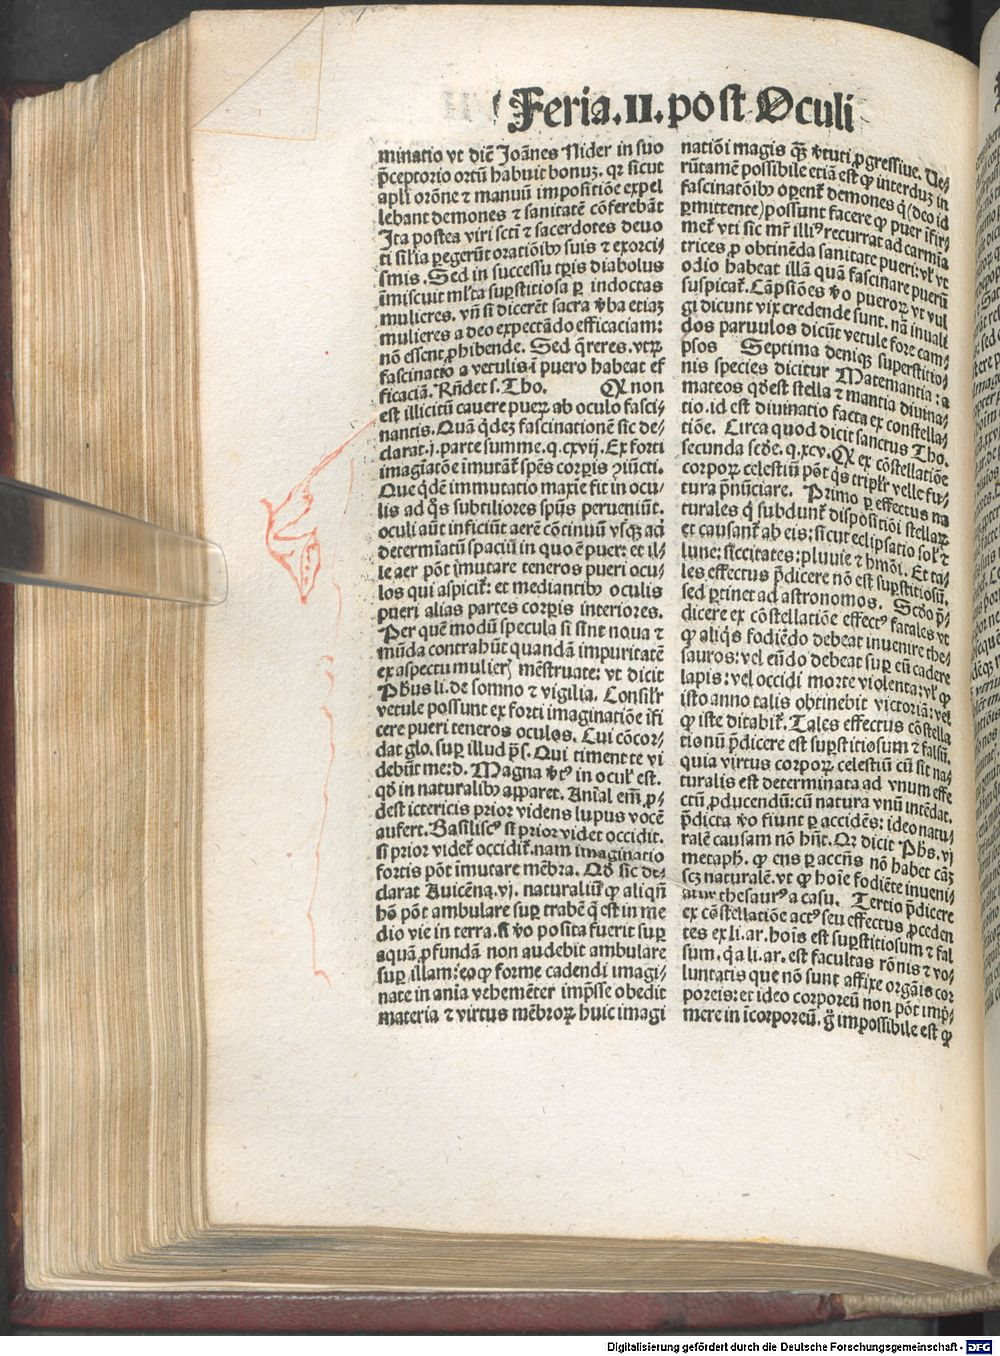 Feria.II.post Oculi
minatio vt diē Joānes Nider in suo
p̄ceptorio ortū habuit bonuꝫ. qꝛ sicut
apl̄i orōne ⁊ manuū impositiōe expel
lebant demones ⁊ sanitatē cōferebāt
Ita postea viri scti ⁊ sacerdotes deuo
ti silia ꝑegerūt oratiōibꝰ suis ⁊ exorci⸗
smis. Sed in successu tꝑis diabolus
īmiscuit ml̄ta suꝑstitiosa ꝑ indoctas
mulieres. vn̄ si dicerēt sacra v̄ba etiaꝫ
mulieres a deo expectādo efficaciam:
nō essent ꝓhibende. Sed q̄reres. vtꝝ
fascinatio a vetulis ī puero habeat ef
ficaciā. Rn̄det s. Tho. Q non
est illicitū cauere pueꝝ ab oculo fasci⸗
nantis. Quā q̇deꝫ fascinationē sic de⸗
clarat. j. parte summe. q. cxvij. Ex forti
imagīatōe īmutāt᷑ sp̄es corꝑis ꝯiūcti.
Que q̇dē immutatio maxīe fit in ocu⸗
lis ad q̇s subtiliores sp̄us perueniūt.
oculi aūt inficiūt aerē cōtinuū vsqꝫ ad
determīatū spaciū in quo ē puer: et il⸗
le aer pōt īmutare teneros pueri ocu⸗
los qui aspicit᷑: et mediantibꝰ oculis
pueri alias partes corꝑis interiores.
Per quē modū specula si sint noua ⁊
mūda contrahūt quandā impuritatē
ex aspectu mulieꝝ mēstruate: vt dicit
Ph̄us li. de somno ⁊ vigilia. Consilr̄
vetule possunt ex forti imaginatiōe īfi
cere pueri teneros oculos. Cui cōcor⸗
dat glo. suꝑ illud ps̄. Qui timent te vi
debūt me: d. Magna v̄tꝰ in ocul̓ est.
qd̓ in naturalibꝰ apparet. Anīal em̄ ꝓ⸗
dest ictericis prior videns lupus vocē
aufert. Basiliscꝰ si prior videt occidit.
si prior videt᷑ occidit᷑. nam imaginatio
fortis pōt īmutare mēbra. Qd̓ sic de⸗
clarat Auicēna. vj. naturaliū ꝙ aliqn̄
hō pōt ambulare suꝑ trabē q̄ est in me
dio vie in terra. si v̓o posita fuerit suꝑ
aquā ꝓfundā non audebit ambulare
suꝑ illam: eoꝙ forme cadendi imagi⸗
nate in anīa vehemēter imp̄sse obedit
materia ⁊ virtus mēbroꝝ huic imagi
natiōi magis qꝫ v̓tuti ꝓgressiue. Ue⸗
rūtamē possibile etiā est ꝙ interduꝫ in
fascinatōibꝰ operent᷑ demones q̇ (deo id
ꝑmittente) possunt facere ꝙ puer īfir⸗
met᷑ vti sic mr̄ illiꝰ recurrat ad carmīa
trices ꝓ obtinēda sanitate pueri: vl̓ vt
odio habeat illā quā fascinare puerū
suspicat᷑. Cāpsiōes v̓o pueroꝝ vt vul
gi dicunt vix credende sunt. nā inuali
dos paruulos dicūt vetule fore cam⸗
psos Septima deniqꝫ superstitio⸗
nis species dicitur Matemantia: a
mateos qd̓ est stella ⁊ mantia diuina⸗
tio. id est diuinatio facta ex constella⸗
tiōe. Circa quod dicit sanctus Tho.
secunda secde. q. xcv. Q ex cōstellatiōe
corpoꝝ celestiū pōt q̇s triplr̄ velle fu⸗
tura p̄nūciare. Primo ꝑ effectus na
turales q̇ subdunt᷑ dispositiōi stellaꝝ
et causant᷑ ab eis: sicut eclipsatio sol̓ ⁊
lune: siccitates: pluuie ⁊ hmōi. Et ta⸗
les effectus p̄dicere nō est suꝑstitiosū.
sed ꝑtinet ad astronomos. Scd̓o p̄⸗
dicere ex cōstellatiōe effectꝰ fatales vt
ꝙ aliq̇s fodiēdo debeat inuenire the⸗
sauros: vel eūdo debeat suꝑ eū cadere
lapis: vel occidi morte violenta: vl̓ ꝙ
isto anno talis obtinebit victoriā: vel
ꝙ iste ditabit᷑. Tales effectus cōstella
tionū p̄dicere est suꝑstitiosum ⁊ falsū.
quia virtus corpoꝝ celestiū cū sit na⸗
turalis est determinata ad vnum effe
ctū ꝓducendū: cū natura vnū intēdat.
p̄dicta v̓o fiunt ꝑ accidēs: ideo natu⸗
ralē causam nō hn̄t. Qꝛ dicit Ph̄s. vj
metaph. ꝙ ens ꝑ accn̄s nō habet cāꝫ
scꝫ naturalē. vt ꝙ hoīe fodiēte inueni⸗
atur thesaurꝰ a casu. Tertio p̄dicere
ex cōstellatiōe actꝰ seu effectus ꝓceden
tes ex li. ar. hoīs est suꝑstitiosum ⁊ fal
sum. q̇a li. ar. est facultas rōnis ⁊ vo⸗
luntatis que nō sunt affixe orgāis cor
poreis: et ideo corporeū non pōt imp̄⸗
mere in īcorporeū. g̊ impossibile est ꝙ
Digitalisierung gefördert durch die Deutsche Forschungsgemeinschaft - DFG